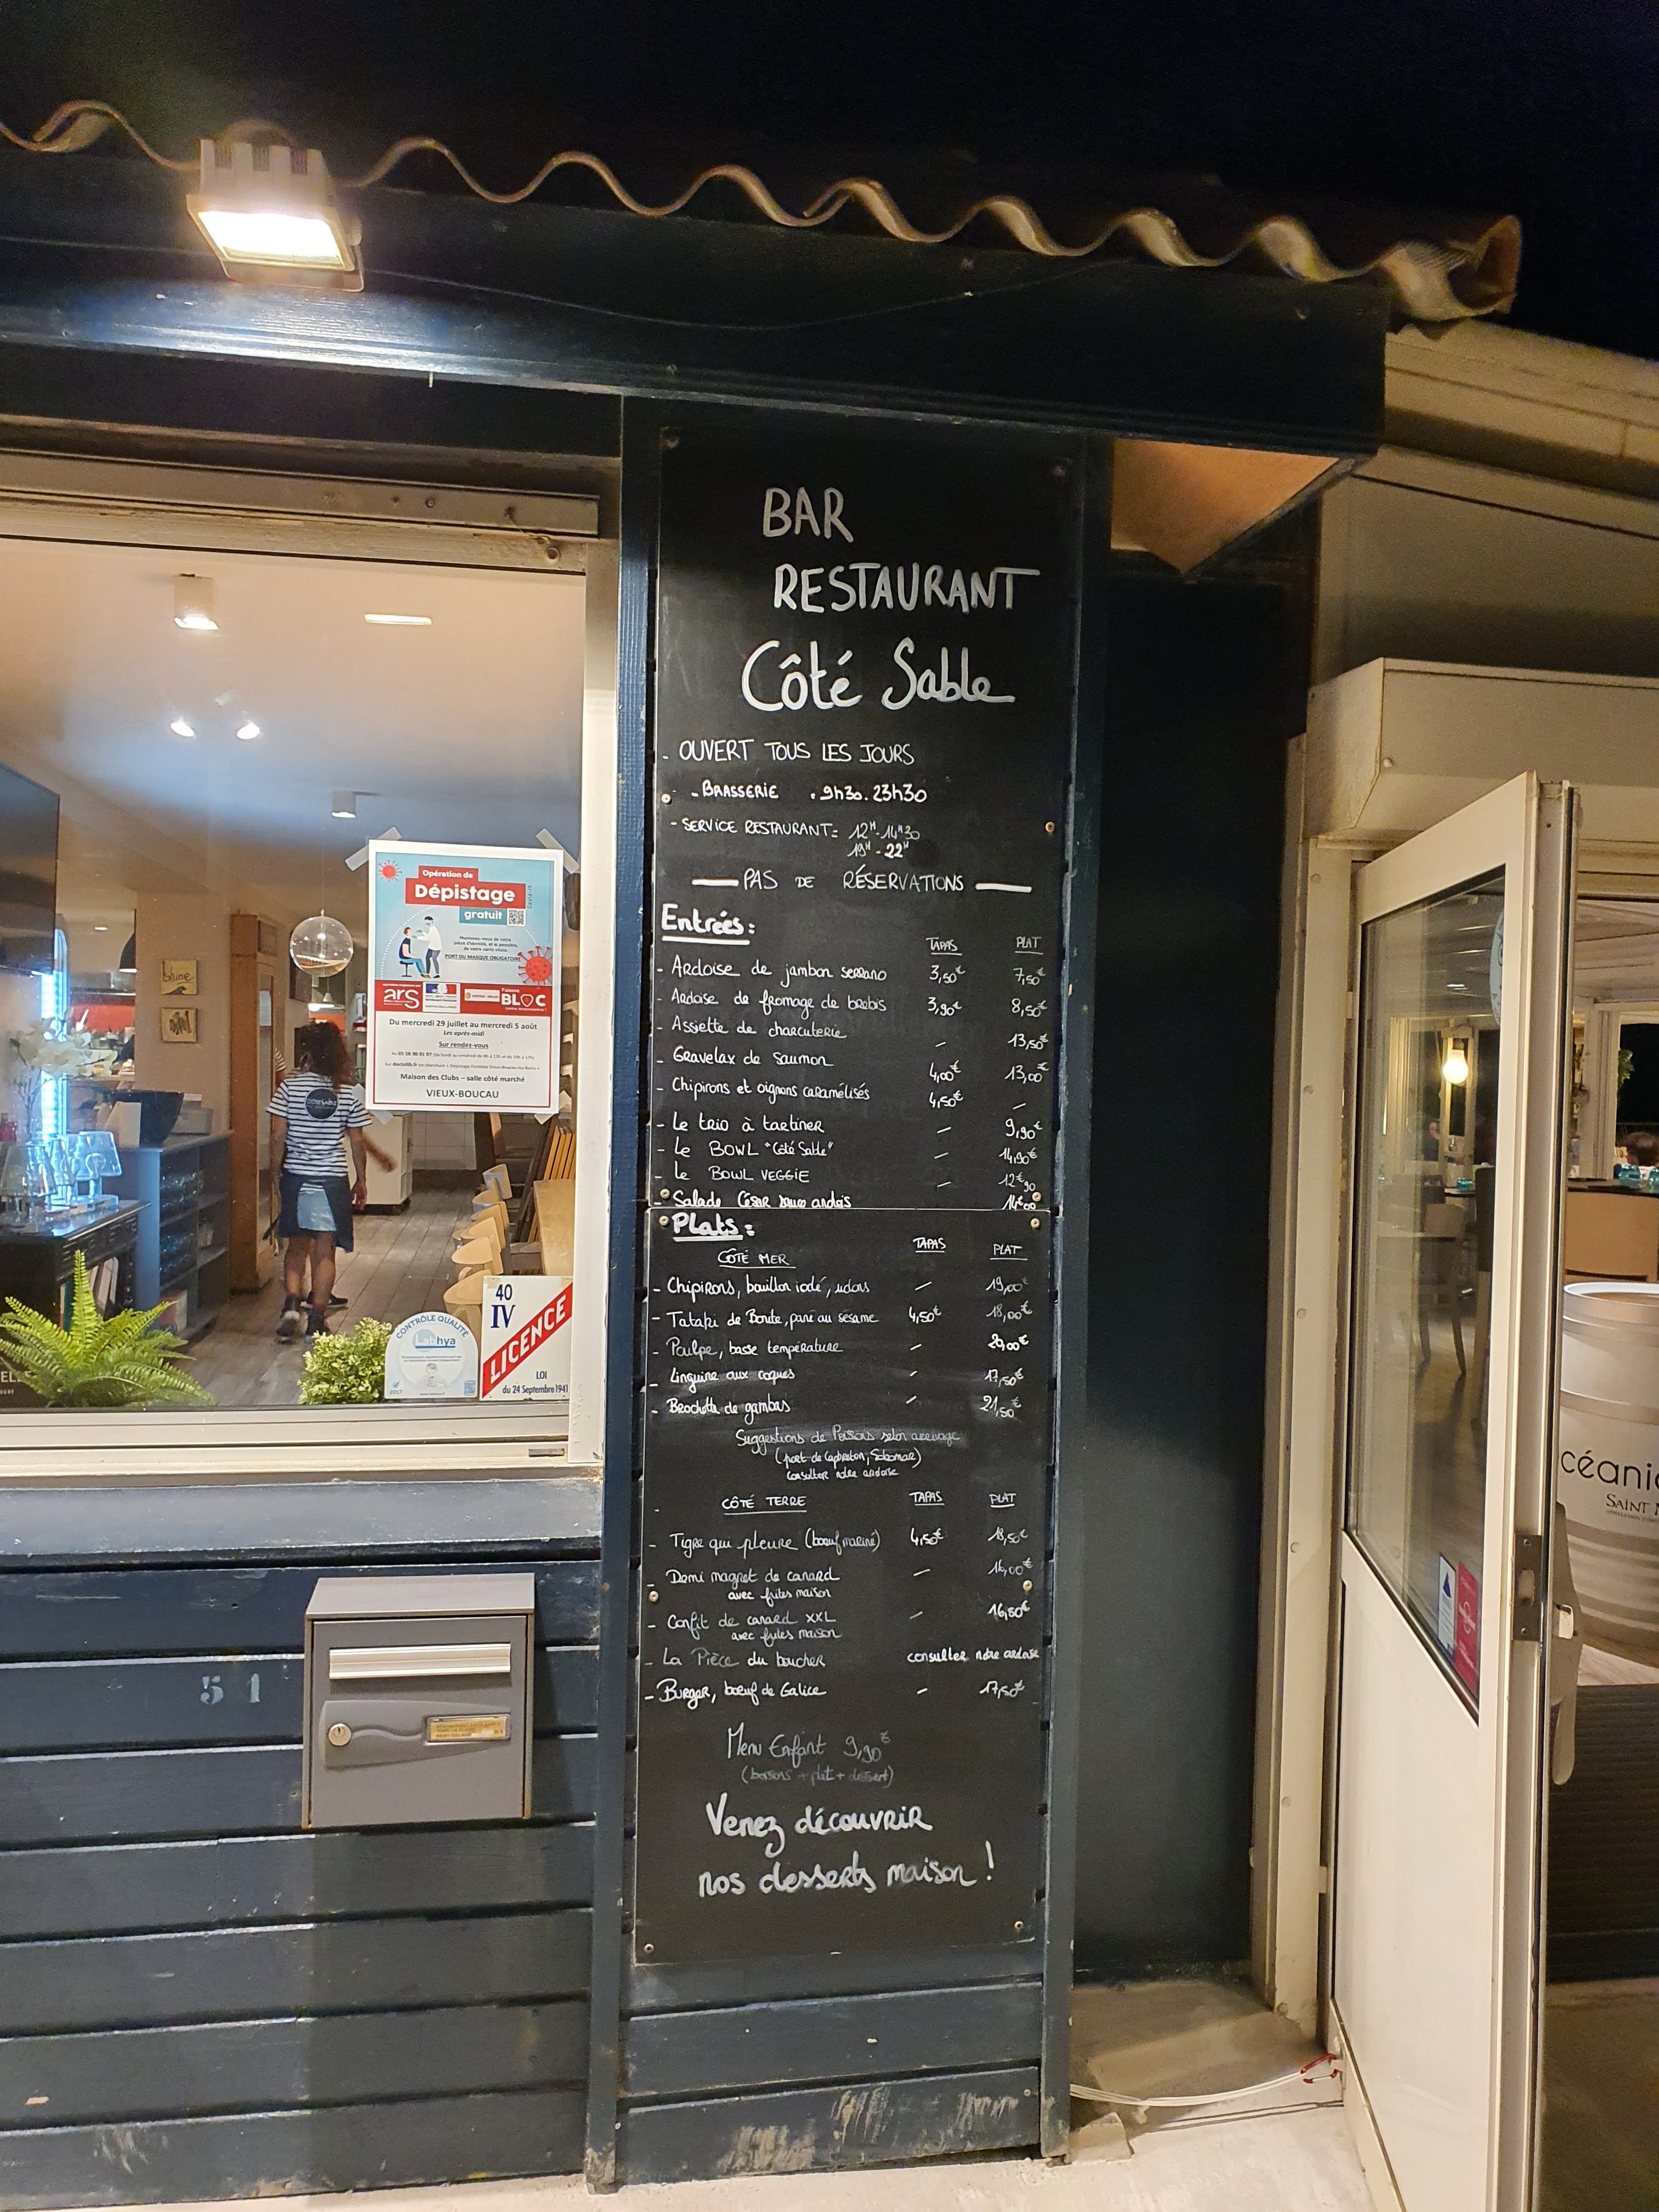 BAR
RESTAURANT
Côté Sable
- OUVERT TOUS LES JOURS
- BRASSERIE . 9h30. 23h30
- SERVICE RESTAURANT = 12H - 14H30
19H - 22H
— PAS DE RÉSERVATIONS —
Entrées :
TAPAS PLAT
- Ardoise de jambon serrano 3,50€ 7,50€
- Ardoise de fromage de brebis 3,90€ 8,50€
- Assiette de charcuterie – 13,50€
- Gravelax de saumon 4,00€ 13,00€
- Chipirons et oignons caramélisés 4,50€ –
- Le trio à tartiner – 9,90€
- Le BOWL "Côté Sable" – 14,90€
- Le BOWL VEGGIE – 12€90
- Salade César 14€00
Plats :
CÔTÉ MER TAPAS PLAT
- Chipirons, bouillon iodé, udons – 19,00€
- Tataki de Bonite, pané au sésame 4,50€ 18,00€
- Poulpe, basse température –
- Linguine aux coques – 17,50€
- Brochette de gambas – 21,50€
Suggestions de Poissons selon arrivage
(port de Capbreton,
consulter notre ardoise
CÔTÉ TERRE TAPAS PLAT
- Tigre qui pleure (boeuf mariné) 4,50€ 18,50€
- Demi magret de canard –
avec frites maison
- Confit de canard XXL – 16,50€
avec frites maison
- La Pièce du boucher consulter notre ardoise
- Burger, boeuf de Galice – 17,50€
Menu Enfant 9,90€
(boissons + plat + dessert)
Venez découvrir
nos desserts maison !
Opération de
Dépistage
gratuit
Munissez-vous de votre
pièce d'identité, et si possible,
de votre carte vitale.
PORT DU MASQUE OBLIGATOIRE
ars
Faisons
BLOC
Du mercredi 29 juillet au mercredi 5 août
Les après-midi
Sur rendez-vous
Maison des Clubs – salle côté marché
VIEUX-BOUCAU
Shine
CONTRÔLE QUALITÉ
Labhya
2017
40
IV
LICENCE
LOI
du 24 Septembre 1941
51
céani
SAINT